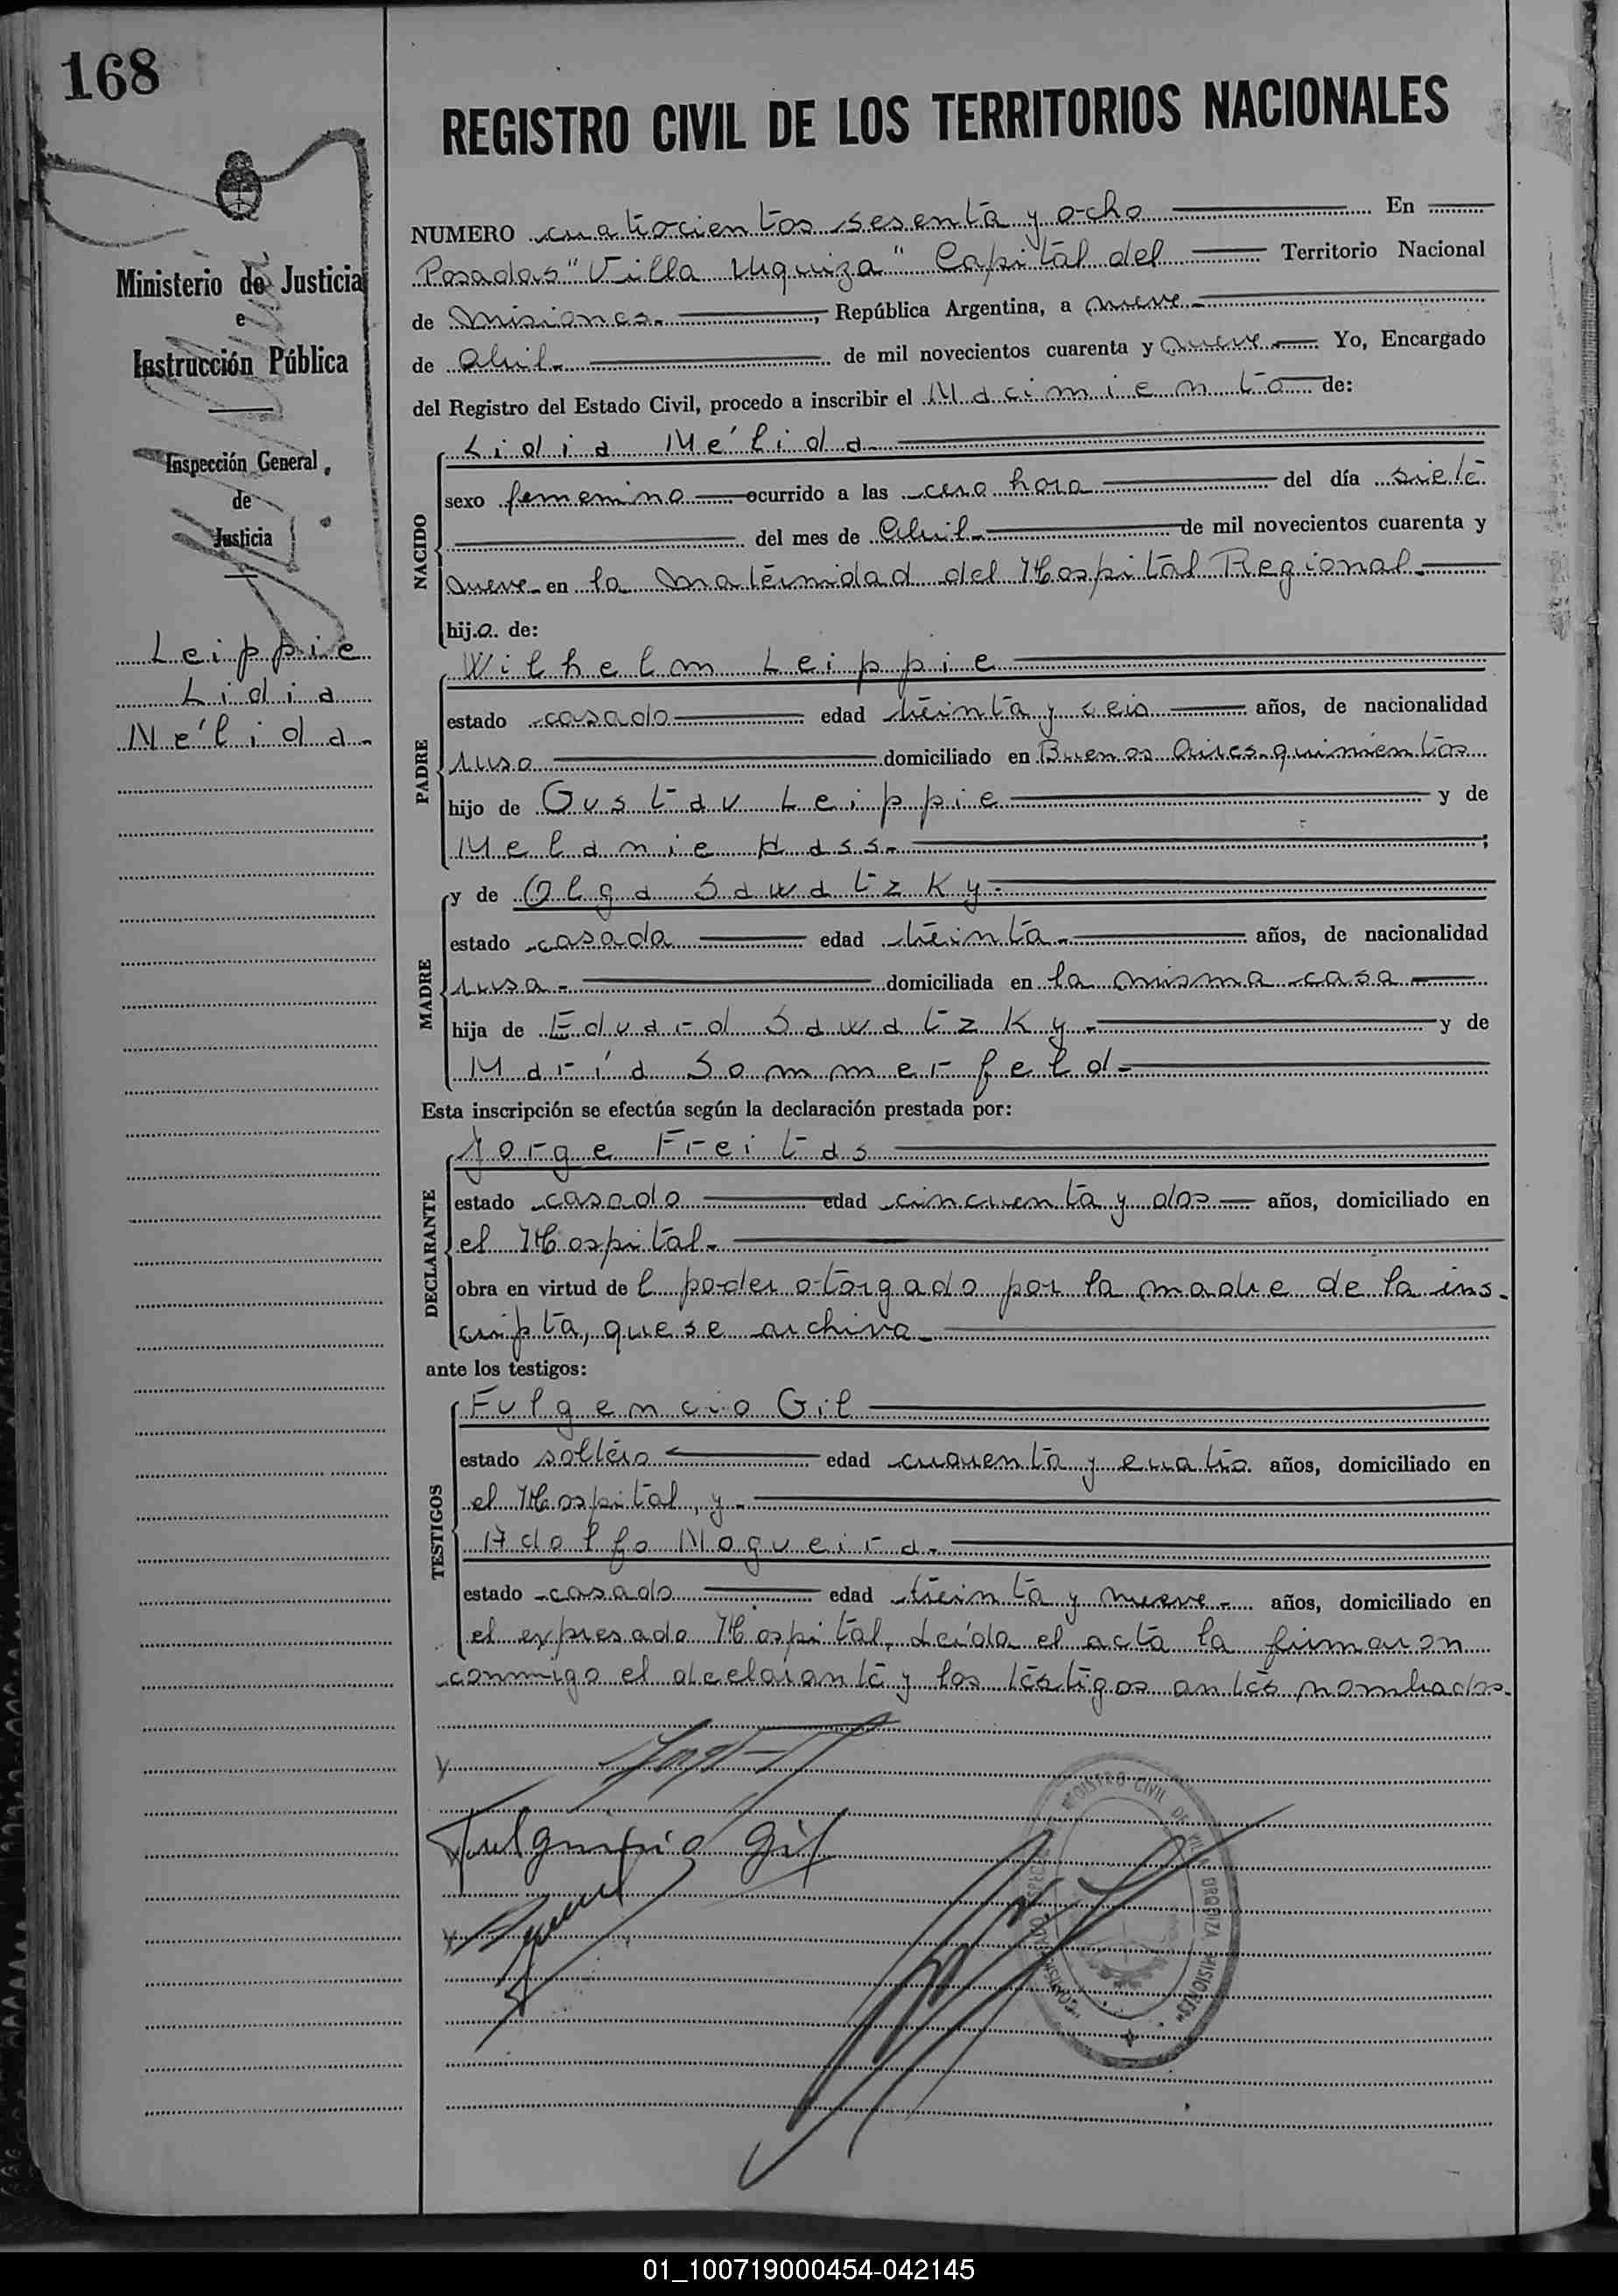 168
REGISTRO CIVIL DE LOS TERRITORIOS NACIONALES
Ministerio de Justicia
e
Instrucción Pública
Inspección General
de
Justicia
Leippie
Lidia
Nélida.
NUMERO cuatrocientos sesenta y ocho En
Posadas "Villa Urquiza" Capital del Territorio Nacional
de Misiones.-, República Argentina, a nueve-
de Abril.- de mil novecientos cuarenta y nueve.- Yo, Encargado
del Registro del Estado Civil, procedo a inscribir el Nacimiento de:
NACIDO
Lidia Nélida.-
sexo femenino ocurrido a las cero hora del día siete
del mes de Abril.- de mil novecientos cuarenta y
nueve- en la maternidad del Hospital Regional.-
hij.a. de:
PADRE
Wilhelm Leippie
estado casado edad treinta y seis años, de nacionalidad
ruso domiciliado en Buenos Aires-quinientos
hijo de Gustav Leippie y de
Melanie Hass.- ;
MADRE
y de Olga Sawatzky.-
estado casada edad treinta.- años, de nacionalidad
rusa.- domiciliada en la misma casa
hija de Eduard Sawatzky.- y de
María Sommerfeld.-
Esta inscripción se efectúa según la declaración prestada por:
DECLARANTE
Jorge Freitas
estado casado edad cincuenta y dos años, domiciliado en
el Hospital.-
obra en virtud de l poder otorgado por la madre de la ins-
cripta, que se archiva.-
ante los testigos:
TESTIGOS
Fulgencio Gil
estado soltero edad cuarenta y cuatro años, domiciliado en
el Hospital, y.-
Adolfo Nogueira.-
estado casado edad treinta y nueve.- años, domiciliado en
el expresado Hospital. Leída el acta la firmaron
conmigo el declarante y los testigos antes nombrados.
Fulgencio Gil
REGISTRO CIVIL DE VILLA URQUIZA MISIONES
01_100719000454-042145